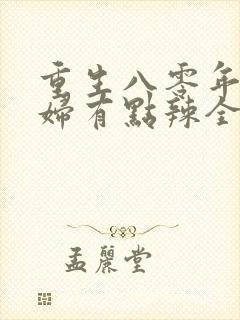 重生八零年
婦有點辣全
孟麗堂